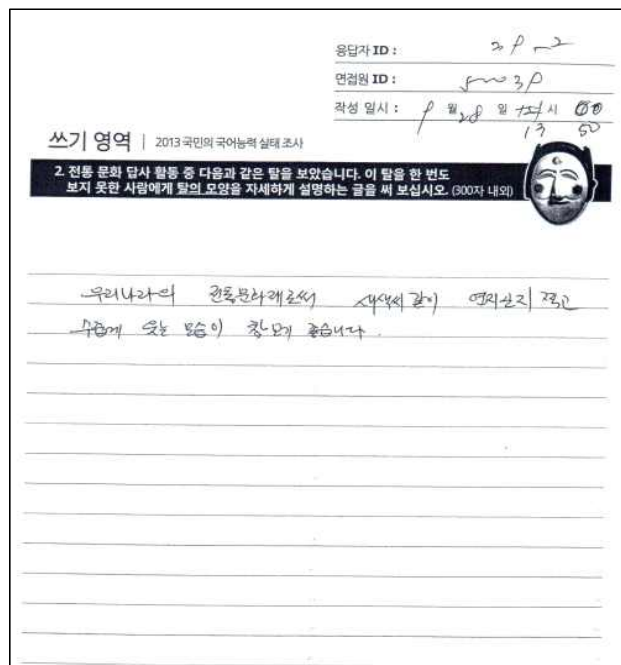 응답자 ID :
면접원 ID :
작성 일시 : 월 28 일 시
13 50
쓰기 영역 | 2013 국민의 국어능력 실태 조사
2. 전통 문화 답사 활동 중 다음과 같은 탈을 보았습니다. 이 탈을 한 번도
보지 못한 사람에게 탈의 모양을 자세하게 설명하는 글을 써 보십시오. (300자 내외)
우리나라의 전통문화재로써 새색씨 같이 연지곤지 찍고
수줍게 웃는 모습이 참 보기 좋습니다.